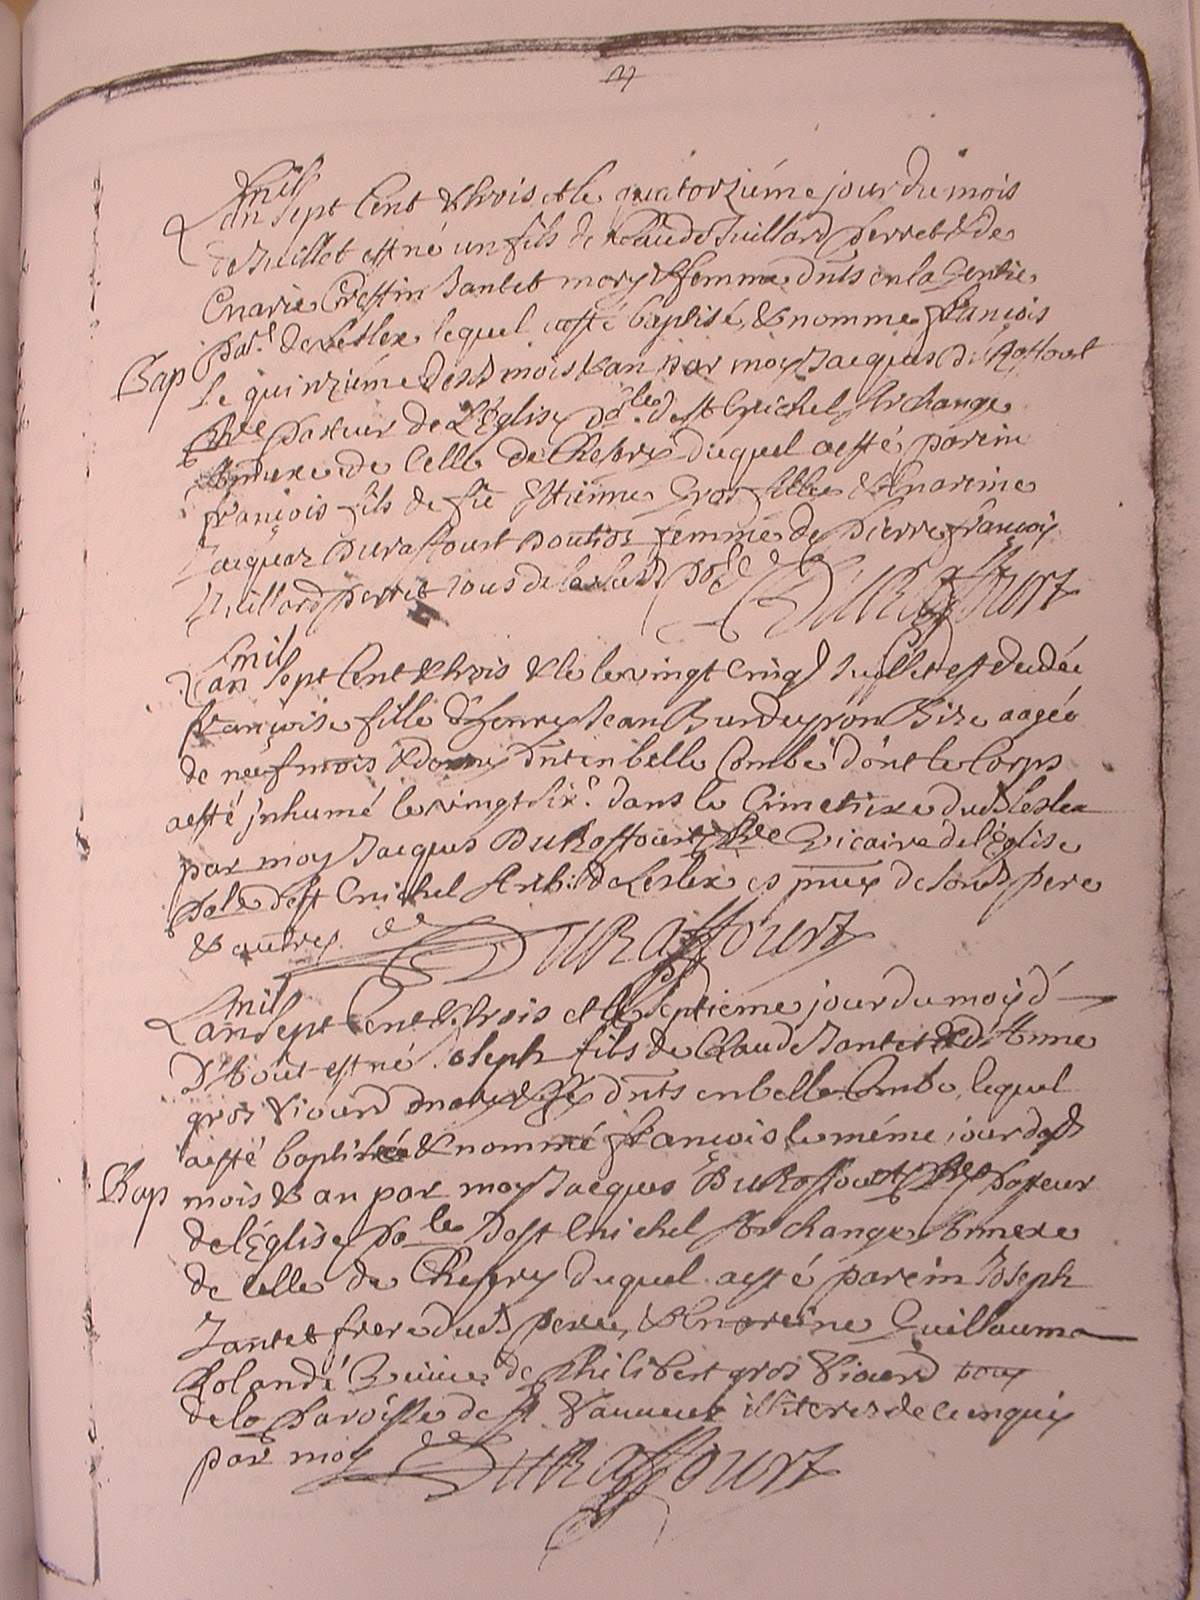 L'an mil sept Cent & trois et le quatorziéme jour du mois
de Juillet est né un fils de Claude Juillard perret & de
Marie Crestin Jantet mary & femme dnts en la
par. de Leslex lequel a esté baptisé & nomme François
Bap
le quinziéme desd mois & an par moy Jacques Duraffourt
Pbre pasteur de L'Eglise pale de st Michel Archange
Annexe de Celle de Chesery duquel a esté parein
François fils de Estienne Gros & Mareine
Jacquaz Duraffourt femme de Pierre François
Juillard perret tous de lad par
Duraffourt
L'an mil sept Cent & trois & le le vingt Cinq Juillet est decedée
Françoise fille d'henry Jean aagée
de neuf mois & demy dnte en belle Combe dont le Corps
a esté jnhumé le vingt six.e dans le Cimetiere dud Leslex
par moy Jacques Duraffourt Pbre Vicaire de l'Eglise
pale de st Michel Arch: de Leslex es de sond pere
& autres
Duraffourt
L'an mil sept Cent & trois et le septieme jour du moy d
D'Aout est né Joseph fils de Claude Jantet & d'Anne
gros Viourd mary & dnts en belle Combe, lequel
a esté baptisé & nommé François le méme jour desd
Bap
mois & an par moy Jacques Duraffourt Pbre Pasteur
de l'Eglise pale de st Michel Archange Annexe
de Celle de Chesery duquel a esté parein Joseph
Jantet frere dud pere, & Mareine Guillauma
Rolandé de Philibert gros Viourd tous
de la Paroisse de st illiteres de ce enquis
par moy
Duraffourt